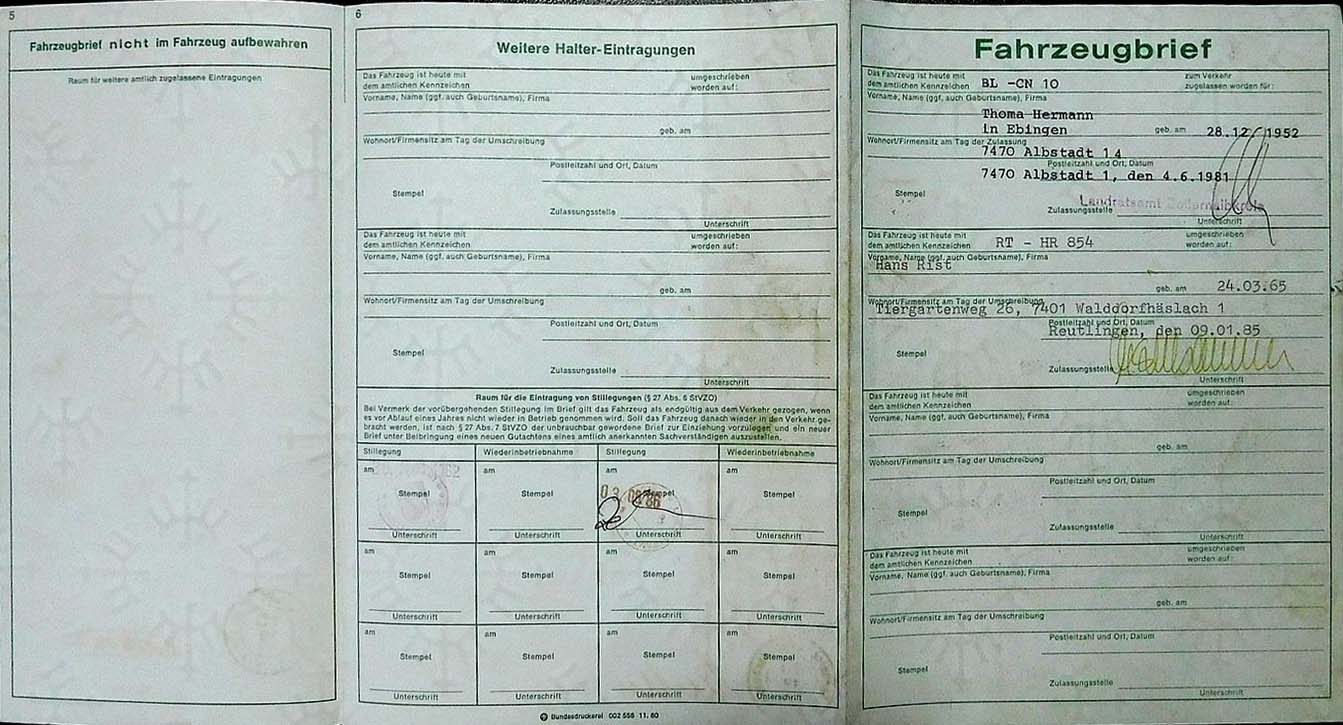 5
Fahrzeugbrief nicht im Fahrzeug aufbewahren
Raum für weitere amtlich zugelassene Eintragungen
6
Weitere Halter-Eintragungen
Das Fahrzeug ist heute mit
dem amtlichen Kennzeichen
umgeschrieben
worden auf:
Vorname, Name (ggf. auch Geburtsname), Firma
geb. am
Wohnort/Firmensitz am Tag der Umschreibung
Postleitzahl und Ort, Datum
Stempel
Zulassungsstelle
Unterschrift
Das Fahrzeug ist heute mit
dem amtlichen Kennzeichen
umgeschrieben
worden auf:
Vorname, Name (ggf. auch Geburtsname), Firma
geb. am
Wohnort/Firmensitz am Tag der Umschreibung
Postleitzahl und Ort, Datum
Stempel
Zulassungsstelle
Unterschrift
Raum für die Eintragung von Stillegungen (§ 27 Abs. 6 StVZO)
Bei Vermerk der vorübergehenden Stillegung im Brief gilt das Fahrzeug als endgültig aus dem Verkehr gezogen, wenn
es vor Ablauf eines Jahres nicht wieder in Betrieb genommen wird. Soll das Fahrzeug danach wieder in den Verkehr ge-
bracht werden, ist nach § 27 Abs. 7 StVZO der unbrauchbar gewordene Brief zur Einziehung vorzulegen und ein neuer
Brief unter Beibringung eines neuen Gutachtens eines amtlich anerkannten Sachverständigen auszustellen.
Stillegung Wiederinbetriebnahme Stillegung Wiederinbetriebnahme
am am am am
Stempel Stempel Stempel Stempel
Unterschrift Unterschrift Unterschrift Unterschrift
am am am am
Stempel Stempel Stempel Stempel
Unterschrift Unterschrift Unterschrift Unterschrift
am am am am
Stempel Stempel Stempel Stempel
Unterschrift Unterschrift Unterschrift Unterschrift
Bundesdruckerei 002 556 11. 80
Fahrzeugbrief
Das Fahrzeug ist heute mit
dem amtlichen Kennzeichen BL -CN 10
zum Verkehr
zugelassen worden für:
Vorname, Name (ggf. auch Geburtsname), Firma
Thoma Hermann
in Ebingen geb. am 28.12.1952
Wohnort/Firmensitz am Tag der Zulassung
7470 Albstadt 14
Postleitzahl und Ort, Datum
7470 Albstadt 1, den 4.6.1981
Stempel
Landratsamt Zollernalbkreis
Zulassungsstelle
Unterschrift
Das Fahrzeug ist heute mit
dem amtlichen Kennzeichen RT - HR 854
umgeschrieben
worden auf:
Vorname, Name (ggf. auch Geburtsname), Firma
Hans Rist
geb. am 24.03.65
Wohnort/Firmensitz am Tag der Umschreibung
Tiergartenweg 26, 7401 Walddorfhäslach 1
Postleitzahl und Ort, Datum
Reutlingen, den 09.01.85
Stempel
Zulassungsstelle
Unterschrift
Das Fahrzeug ist heute mit
dem amtlichen Kennzeichen
umgeschrieben
worden auf:
Vorname, Name (ggf. auch Geburtsname), Firma
geb. am
Wohnort/Firmensitz am Tag der Umschreibung
Postleitzahl und Ort, Datum
Stempel
Zulassungsstelle
Unterschrift
Das Fahrzeug ist heute mit
dem amtlichen Kennzeichen
umgeschrieben
worden auf:
Vorname, Name (ggf. auch Geburtsname), Firma
geb. am
Wohnort/Firmensitz am Tag der Umschreibung
Postleitzahl und Ort, Datum
Stempel
Zulassungsstelle
Unterschrift